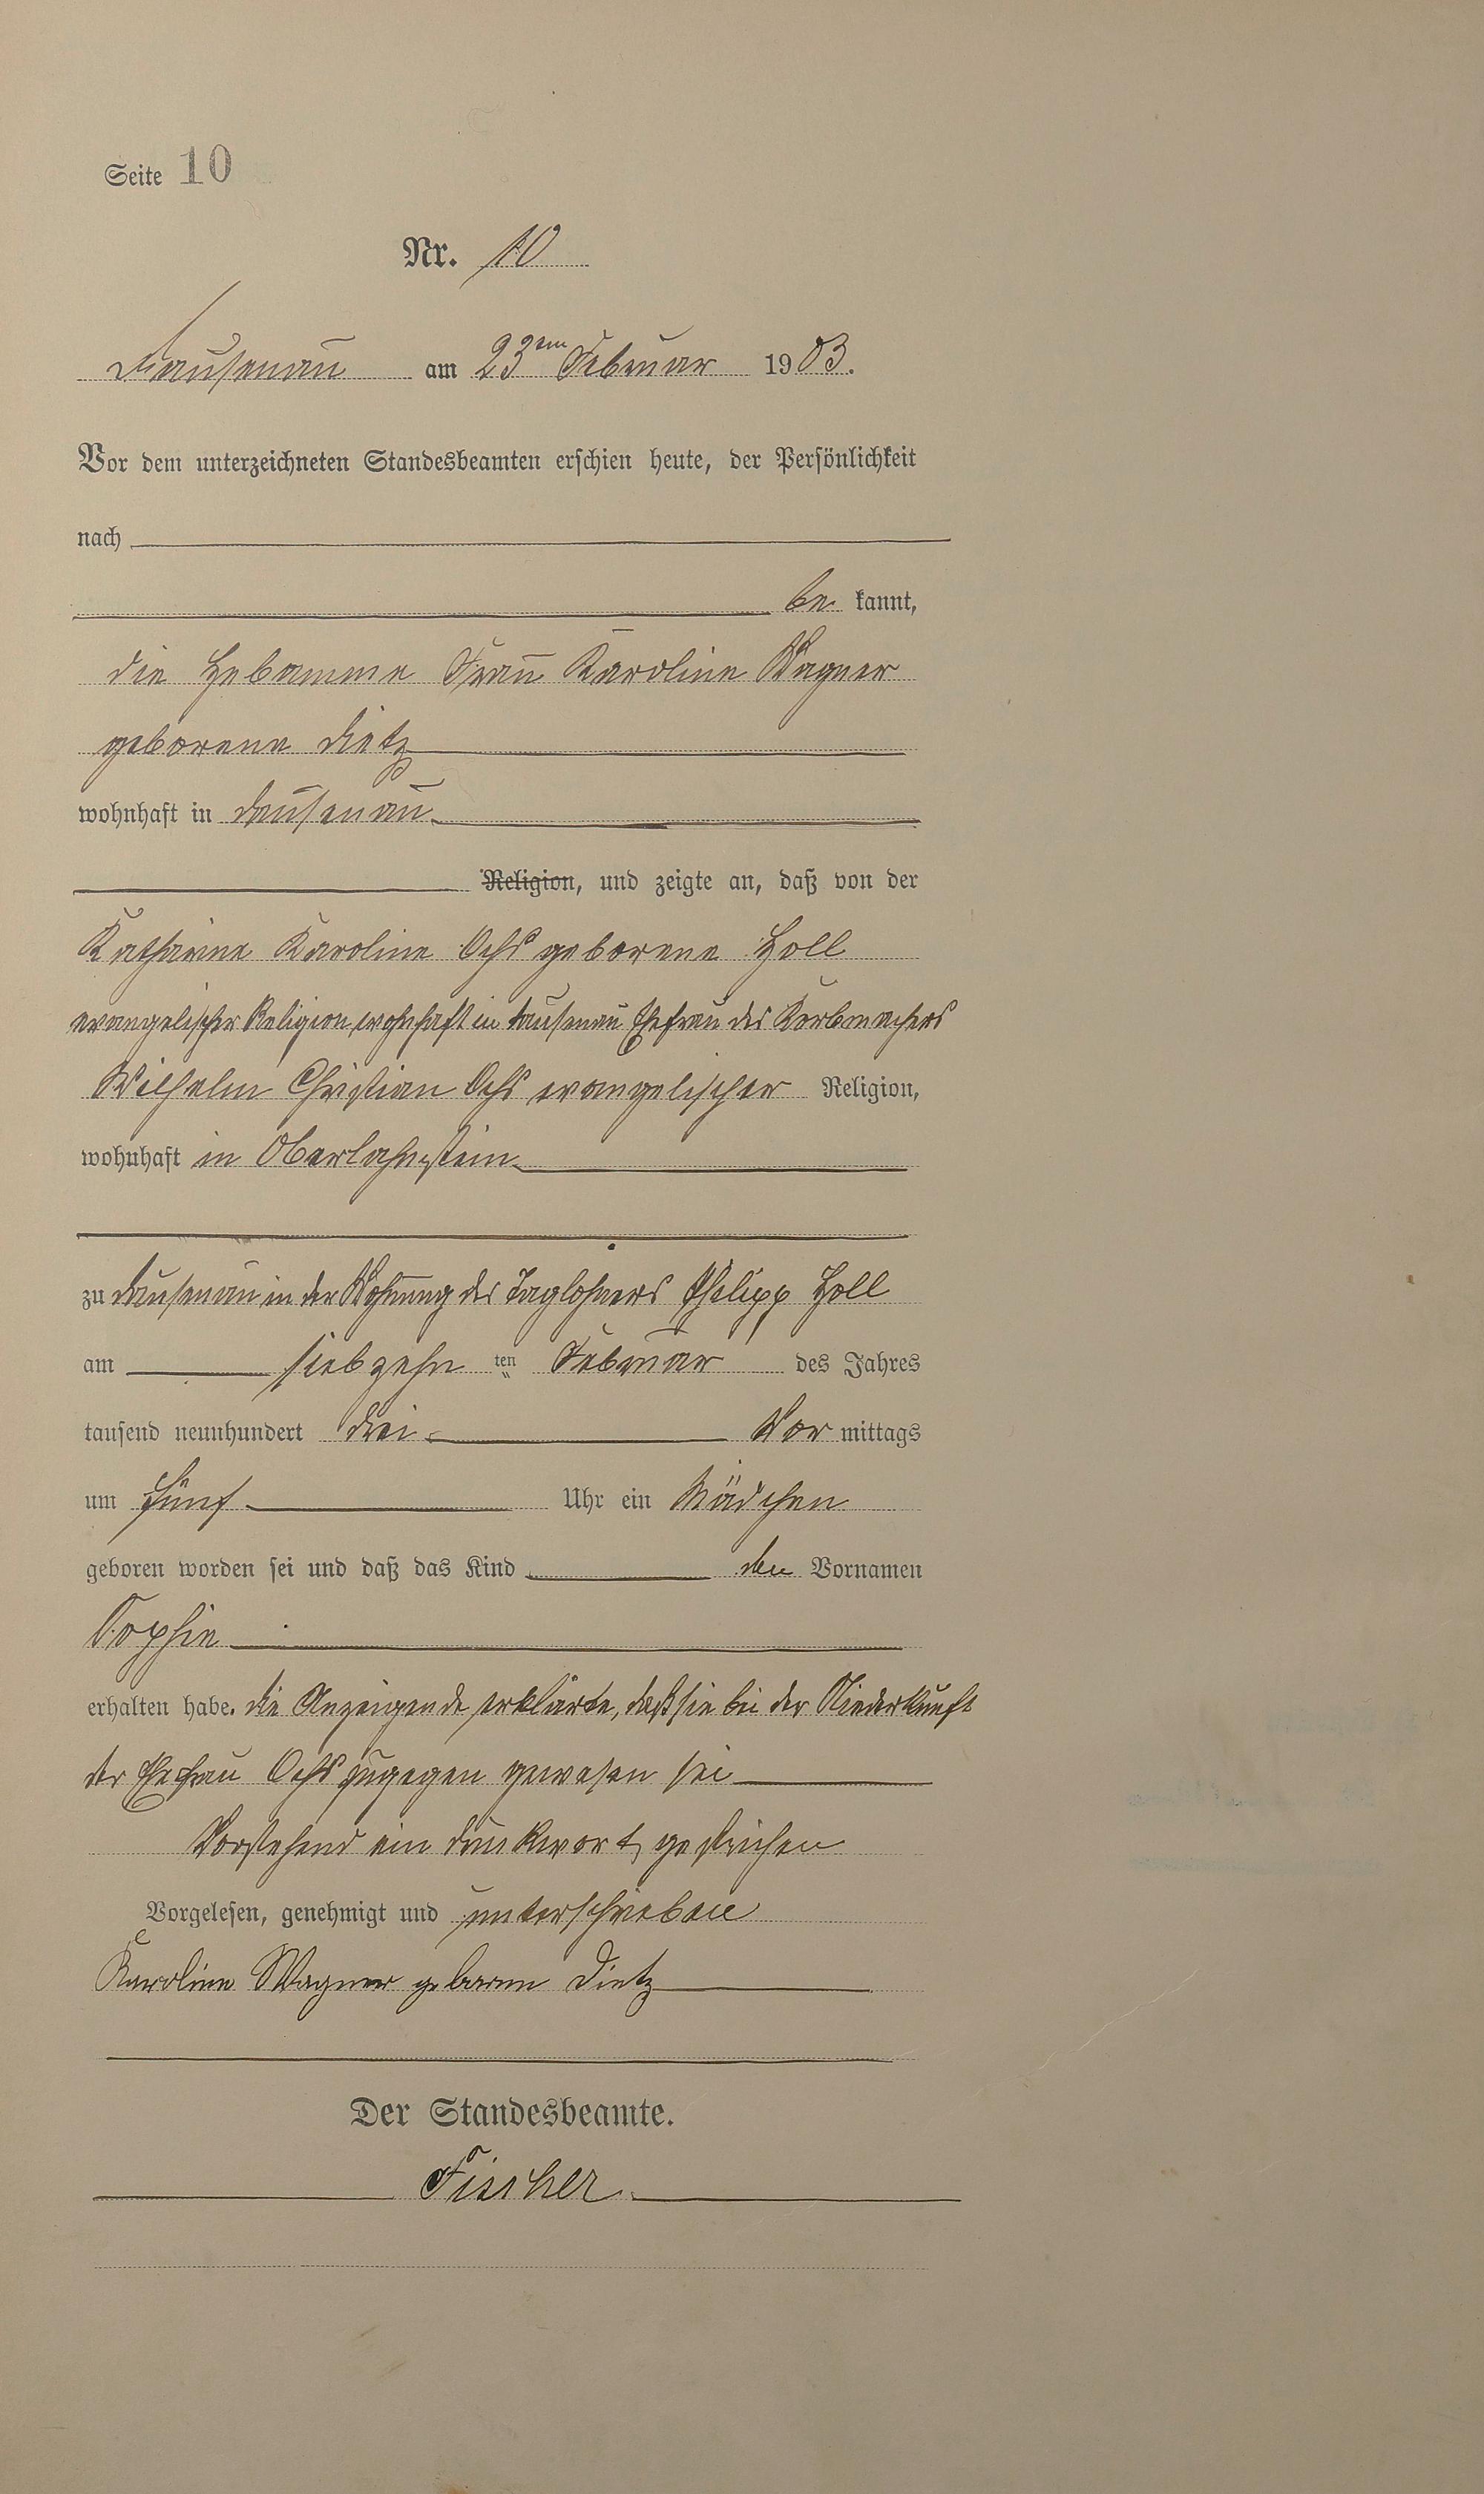 Seite 10
Nr. 10
Dausenau am 23ten Februar 1903.
Vor dem unterzeichneten Standesbeamten erschien heute, der Persönlichkeit
nach
be kannt,
die Hebamme Frau Karoline Wagner
geborene Dietz
wohnhaft in Dausenau
Religion, und zeigte an, daß von der
Katharine Karoline Ochs geborene Holl
evangelischer Religion, wohnhaft in Dausenau Ehefrau des Korbmachers
Wilhelm Christian Ochs evangelischer Religion,
wohnhaft in Oberlahnstein
zu Dausenau in der Wohnung des Taglöhners Philipp Holl
am siebzehn ten Februar des Jahres
tausend neunhundert drei Vor mittags
um fünf Uhr ein Mädchen
geboren worden sei und daß das Kind den Vornamen
Sophie
erhalten habe. Die Anzeigende erklärte, daß sie bei der Niederkunft
der Ehefrau Ochs zugegen gewesen sei
Vorstehend ein Druckwort gestrichen
Vorgelesen, genehmigt und unterschrieben
Karoline Wagner geborene Dietz
Der Standesbeamte.
Fischer